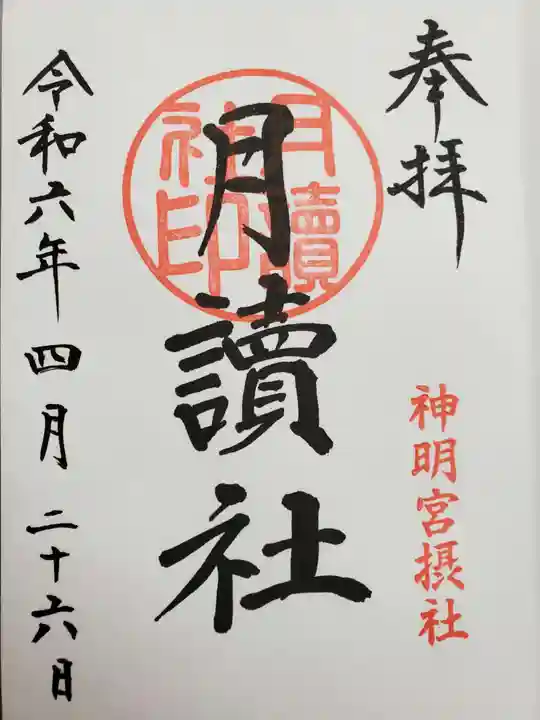 奉拝
神明宮摂社
月讀社
月讀社印
令和六年四月二十六日